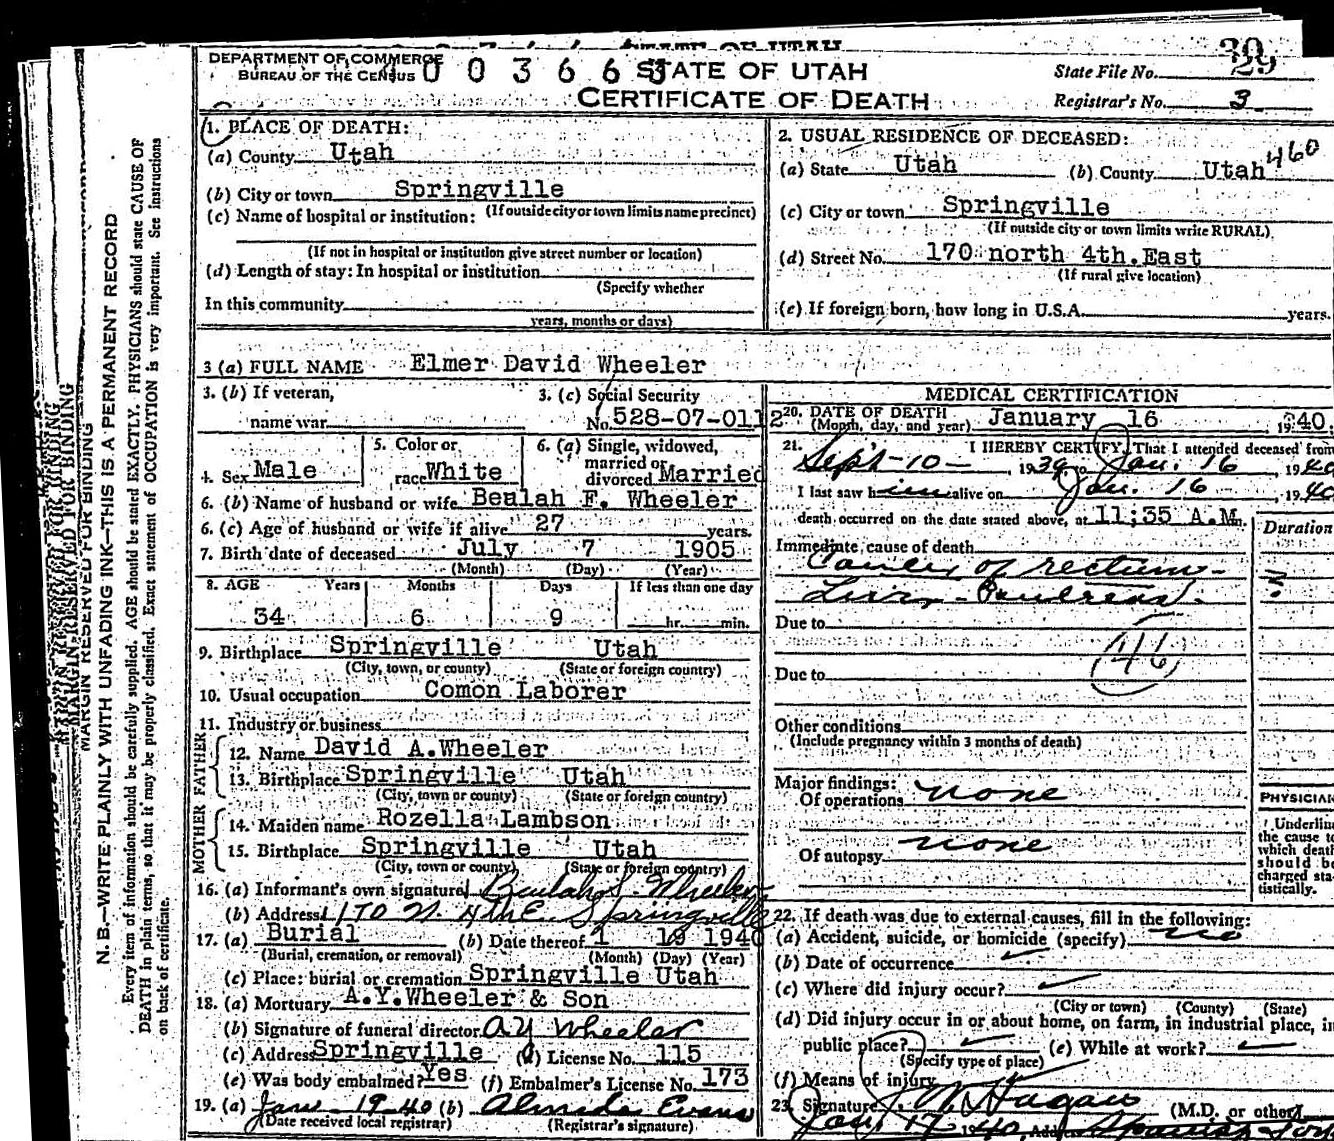 STATE OF UTAH
DEPARTMENT OF COMMERCE
BUREAU OF THE CENSUS
0 0 3 6 6
STATE OF UTAH
CERTIFICATE OF DEATH
State File No. 29
Registrar's No. 3
1. PLACE OF DEATH:
(a) County Utah
(b) City or town Springville
(If outside city or town limits name precinct)
(c) Name of hospital or institution:
(If not in hospital or institution give street number or location)
(d) Length of stay: In hospital or institution
(Specify whether
In this community
years, months or days)
2. USUAL RESIDENCE OF DECEASED:
(a) State Utah (b) County Utah 460
(c) City or town Springville
(If outside city or town limits write RURAL)
(d) Street No. 170 north 4th.East
(If rural give location)
(e) If foreign born, how long in U.S.A. years.
3 (a) FULL NAME Elmer David Wheeler
3. (b) If veteran,
name war
3. (c) Social Security
No. 528-07-0112
4. Sex Male
5. Color or
race White
6. (a) Single, widowed,
married or
divorced Married
6. (b) Name of husband or wife Beulah F. Wheeler
6. (c) Age of husband or wife if alive 27 years.
7. Birth date of deceased July 7 1905
(Month) (Day) (Year)
8. AGE Years Months Days If less than one day
34 6 9 hr. min.
9. Birthplace Springville Utah
(City, town, or county) (State or foreign country)
10. Usual occupation Comon Laborer
11. Industry or business
FATHER
12. Name David A.Wheeler
13. Birthplace Springville Utah
(City, town or county) (State or foreign country)
MOTHER
14. Maiden name Rozella Lambson
15. Birthplace Springville Utah
(City, town or county) (State or foreign country)
16. (a) Informant's own signature Beulah Wheeler
(b) Address 170 N. 4th E. Springville
17. (a) Burial (b) Date thereof 1 19 1940
(Burial, cremation, or removal) (Month) (Day) (Year)
(c) Place: burial or cremation Springville Utah
18. (a) Mortuary A.Y.Wheeler & Son
(b) Signature of funeral director A Y Wheeler
(c) Address Springville (d) License No. 115
(e) Was body embalmed? Yes (f) Embalmer's License No. 173
19. (a) Jan - 19-40 (b) Almeda Evans
(Date received local registrar) (Registrar's signature)
MEDICAL CERTIFICATION
20. DATE OF DEATH January 16 1940.
(Month, day, and year)
21. I HEREBY CERTIFY, That I attended deceased from
Sept-10- 1939 to Jan. 16, 1940
I last saw him alive on Jan. 16, 1940
death occurred on the date stated above, at 11;35 A.M.
Duration
Immediate cause of death
Cancer of rectum-
?
Due to
46
Due to
Other conditions
(Include pregnancy within 3 months of death)
Major findings:
Of operations none
Of autopsy none
PHYSICIAN
Underline
the cause to
which death
should be
charged sta-
tistically.
22. If death was due to external causes, fill in the following:
(a) Accident, suicide, or homicide (specify) no
(b) Date of occurrence
(c) Where did injury occur?
(City or town) (County) (State)
(d) Did injury occur in or about home, on farm, in industrial place, in
public place? (e) While at work?
(Specify type of place)
(f) Means of injury
23. Signature Hagan (M.D. or other)
Jan. 17 1940, Address Spanish Fork
MARGIN RESERVED FOR BINDING
N. B.—WRITE PLAINLY WITH UNFADING INK—THIS IS A PERMANENT RECORD
Every item of information should be carefully supplied. AGE should be stated EXACTLY. PHYSICIANS should state CAUSE OF
DEATH in plain terms, so that it may be properly classified. Exact statement of OCCUPATION is very important. See instructions
on back of certificate.